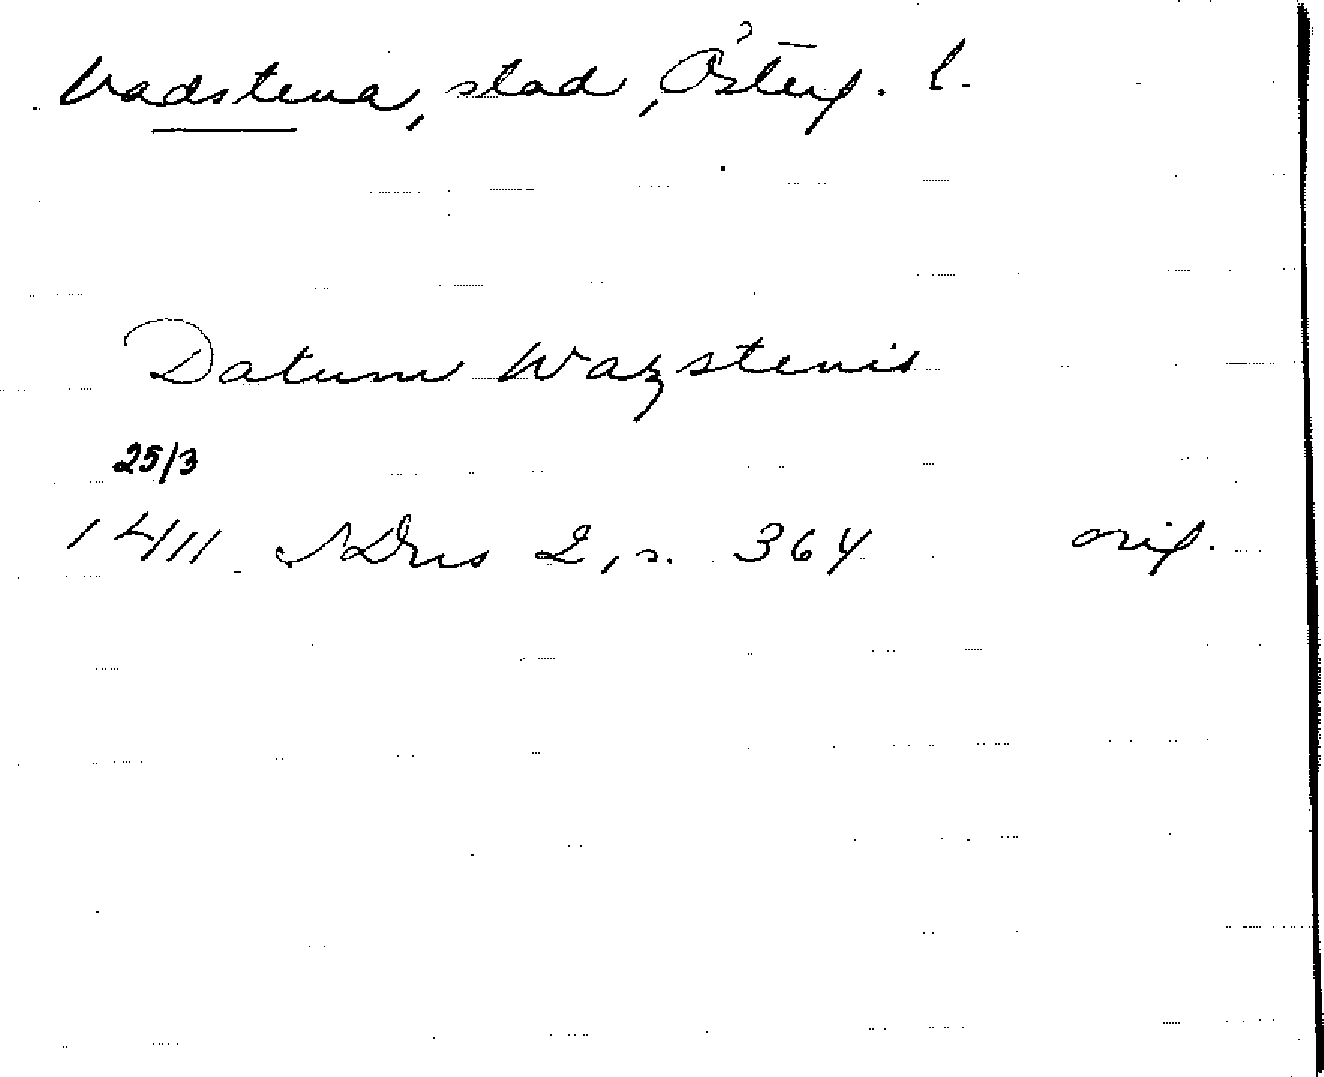 Vadstena, stad, Österg. l.
Datum Wazstenis
25/3
1411 SDns 2, s. 364 orig.